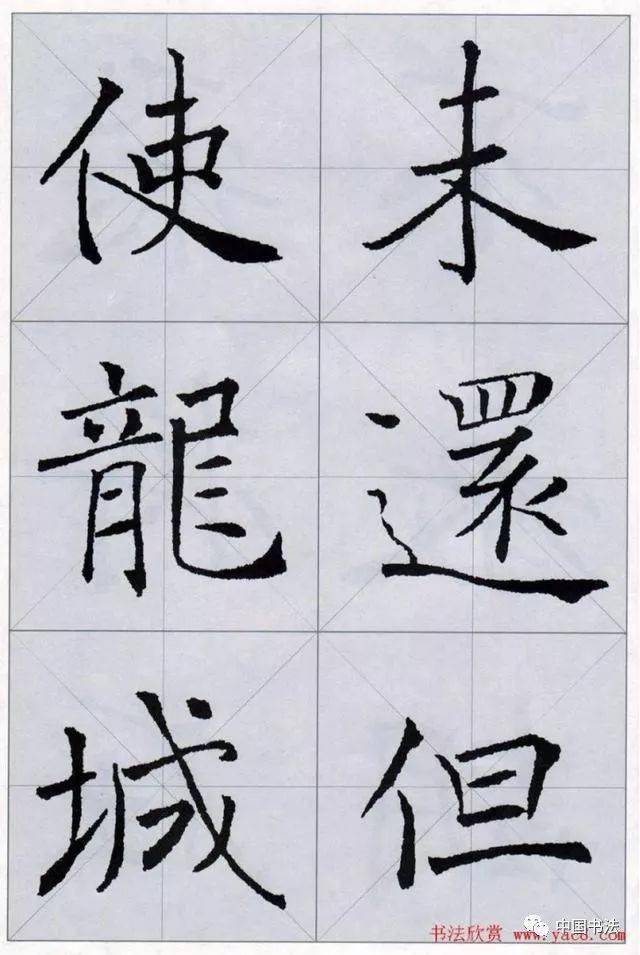 未還但
使龍城
中国书法
书法欣赏 www.yac8.com